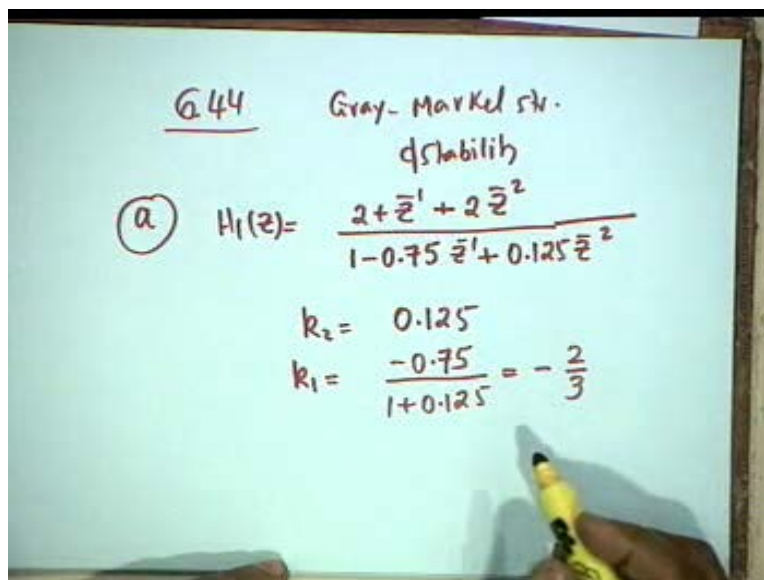 6.44 Gray-Markel str.
& Stability
(a) H₁(z) = 2 + z̄¹ + 2 z̄² / 1 - 0.75 z̄¹ + 0.125 z̄²
k₂ = 0.125
k₁ = -0.75 / 1 + 0.125 = - 2/3